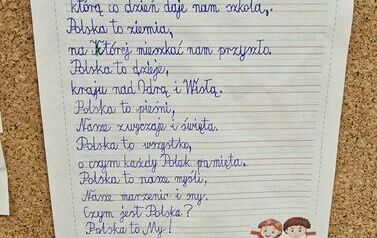 którą co dzień daje nam szkoła,.
Polska to ziemia,
na której mieszkać nam przyszło.
Polska to dzieje,
kraju nad Odrą i Wisłą.
Polska to pieśni,
Nasze zwyczaje i święta.
Polska to wszystko,
o czym każdy Polak pamięta.
Polska to nasze myśli,
Nasze marzenia i sny.
Czym jest Polska?
Polska to My!